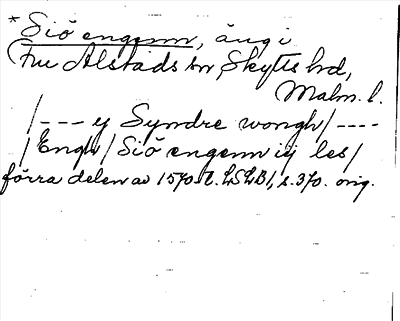 *Siö engenn, äng i
Fru Alstads sn, Skytts hd,
Malm. l.
/--- ij Syndre wongh/----
/Engh/ Siö engenn iij les/
förra delen av 1570-t. LSLB1, s. 370. orig.